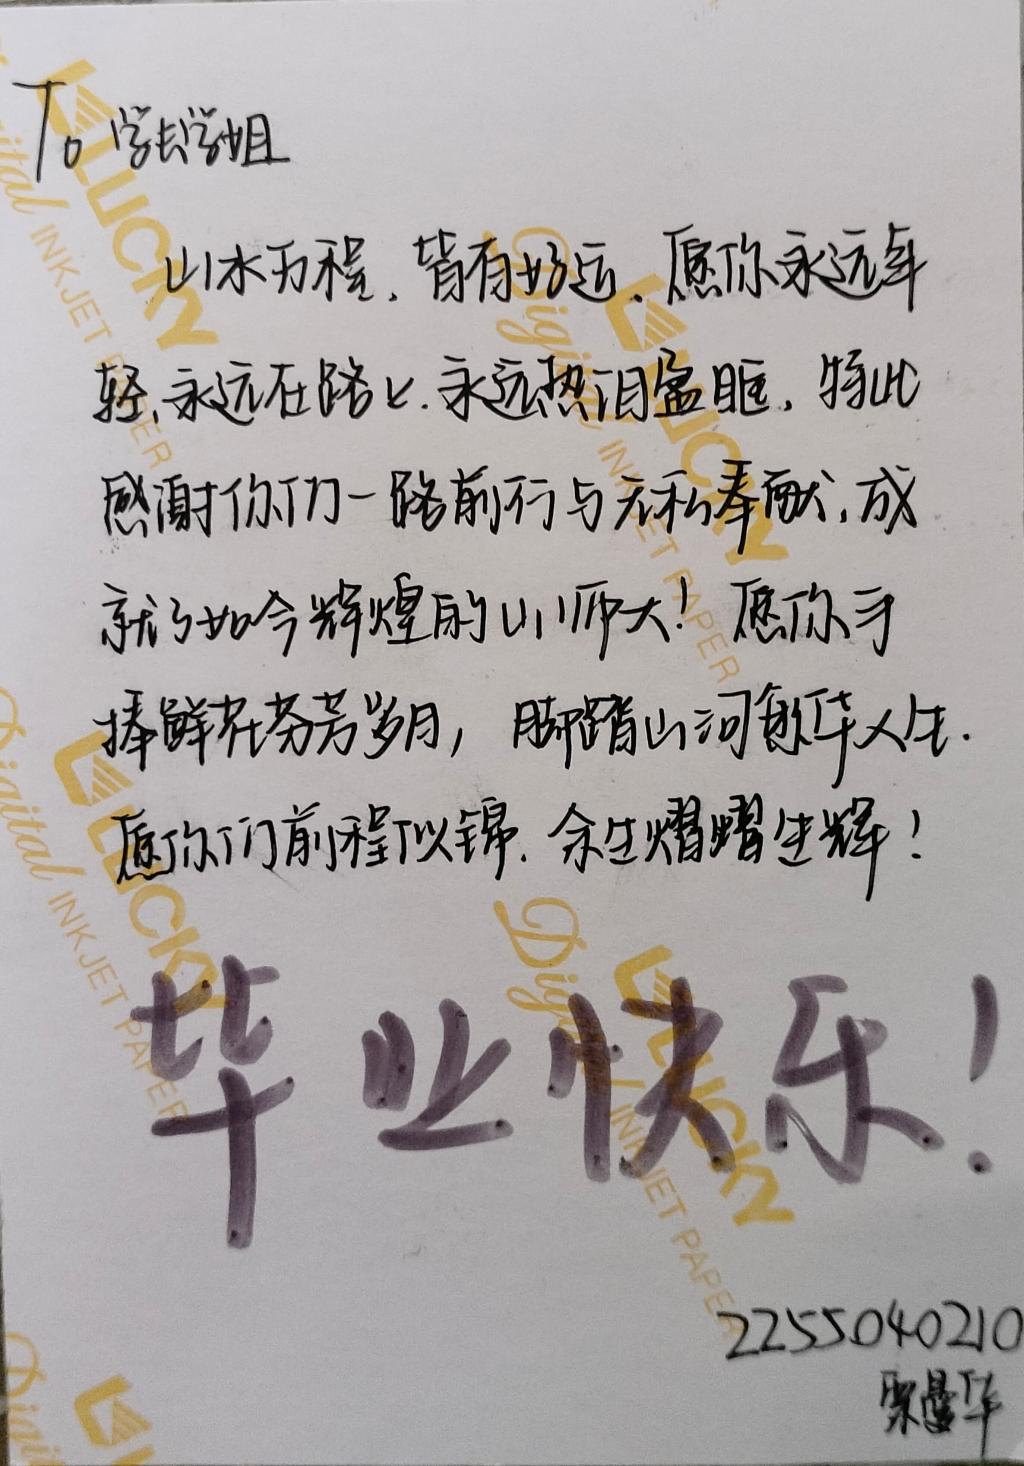 To 学长学姐
山水万程,皆有好运,愿你永远年
轻,永远在路上.永远热泪盈眶,特此
感谢你们一路前行与无私奉献,成
就了如今辉煌的山师大!愿你手
捧鲜花芬芳岁月,脚踏山河年华人生.
愿你们前程似锦.余生熠熠生辉!
毕业快乐!
2255040210
曼华
LUCKY
Digital INKJET PAPER
LUCKY
Digital INKJET PAPER
LUCKY
Digital INKJET PAPER
LUCKY
Digital INKJET PAPER